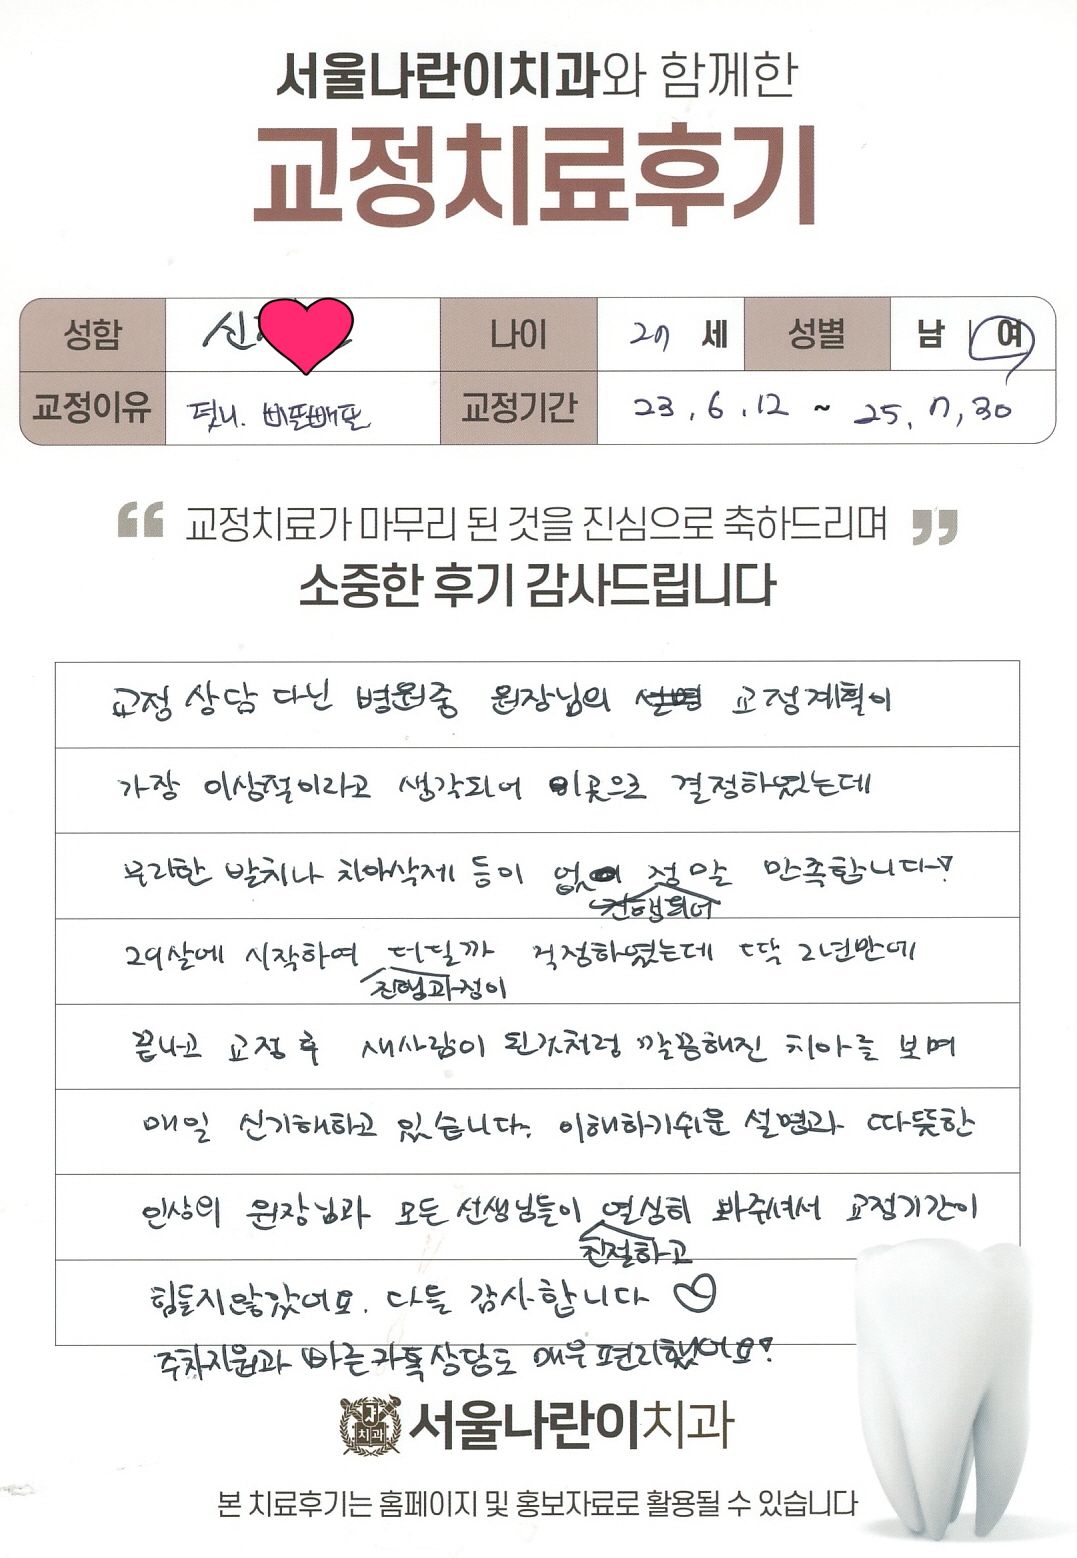 서울나란이치과와 함께한
교정치료후기
성함 신 나이 29 세 성별 남 여
교정이유 덧니. 삐뚤빼뚤 교정기간 23.6.12 ~ 25.7.30
“ 교정치료가 마무리 된 것을 진심으로 축하드리며 ”
소중한 후기 감사드립니다
교정 상담 다닌 병원중 원장님의 설명 교정계획이
가장 이상적이라고 생각되어 이곳으로 결정하였는데
무리한 발치나 치아삭제 등이 없이 정말 만족합니다!
진행되어
29살에 시작하여 더딜까 걱정하였는데 딱 2년만에
진행과정이
끝나고 교정 후 새사람이 된것처럼 깔끔해진 치아를 보며
매일 신기해하고 있습니다. 이해하기쉬운 설명과 따뜻한
인상의 원장님과 모든 선생님들이 열심히 봐주셔서 교정기간이
친절하고
힘들지않았어요. 다들 감사합니다 ♡
주차지원과 빠른 카톡상담도 매우 편리했어요!
치과
서울나란이치과
본 치료후기는 홈페이지 및 홍보자료로 활용될 수 있습니다